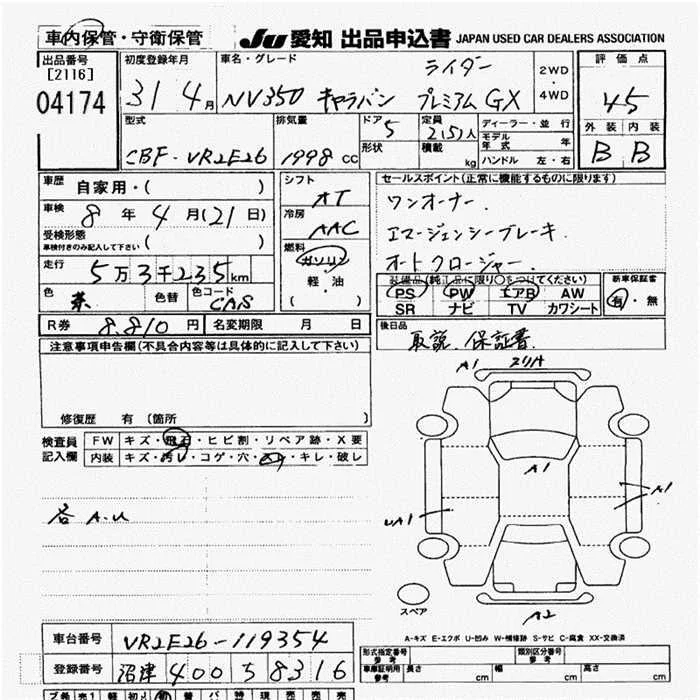 車内保管・守衛保管
JU 愛知 出品申込書 JAPAN USED CAR DEALERS ASSOCIATION
出品番号
[2116]
04174
初度登録年月
31 4月
車名・グレード
ライダー
NV350 キャラバン プレミアム GX
2WD
・
4WD
評価点
4.5
外装 内装
B B
型式
CBF-VR2E26
排気量
1998 cc
ドア 5
形状
定員 2(5)人
積載 kg
ディーラー・並行
モデル年式 年
ハンドル 左・右
車歴
自家用・( )
車検
8年 4月(21日)
受検形態
車検付きのみ記入して下さい ( )
走行
5万3千235km
色 茶
色替
色コード CAS
シフト
AT
冷房
AAC
燃料
ガソリン
軽・油
( )
セールスポイント(正常に機能するものに限ります)
ワンオーナー.
エマージェンシーブレーキ.
オートクロージャー.
装備品(純正品に限り○をつけてください)
PS PW エアB AW
SR ナビ TV カワシート
新車保証書
有・無
R券 8.810円
名変期限 月 日
後日品
取説、保証書
注意事項申告欄(不具合内容等は具体的に記入して下さい)
修復歴 有 (箇所 )
検査員
記入欄
FW キズ・飛石・ヒビ割・リペア跡・X要
内装 キズ・汚レ・コゲ・穴・スレ・キレ・破レ
各 A.U
A1
A1
A1
UA1
A2
スペア
A-キズ E-エクボ U-凹み W-補修跡 S-サビ C-腐食 XX-交換済
車台番号 VR2E26-119354
登録番号 沼津 400 す 8316
形式指定番号
参考
類別区分番号
参考
車庫証明用
参考
長さ cm
幅 cm
高さ cm